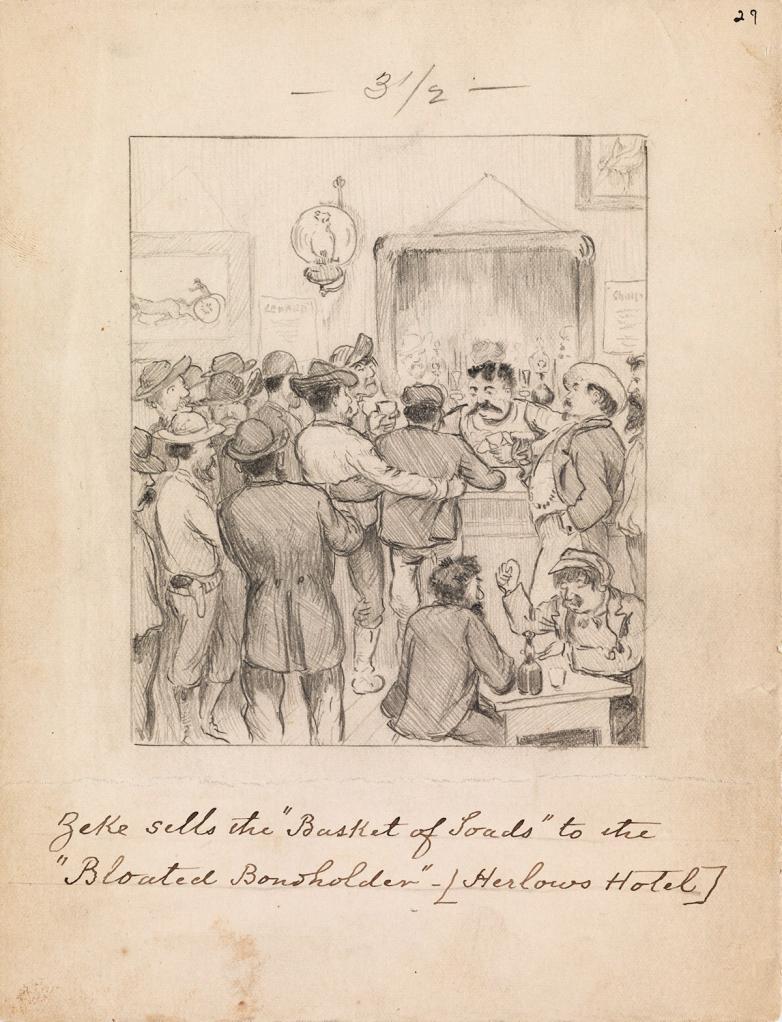 29
— 3 1/2 —
Zeke sells the "Basket of Toads" to the
"Bloated Bondholder" - [Herlows Hotel]